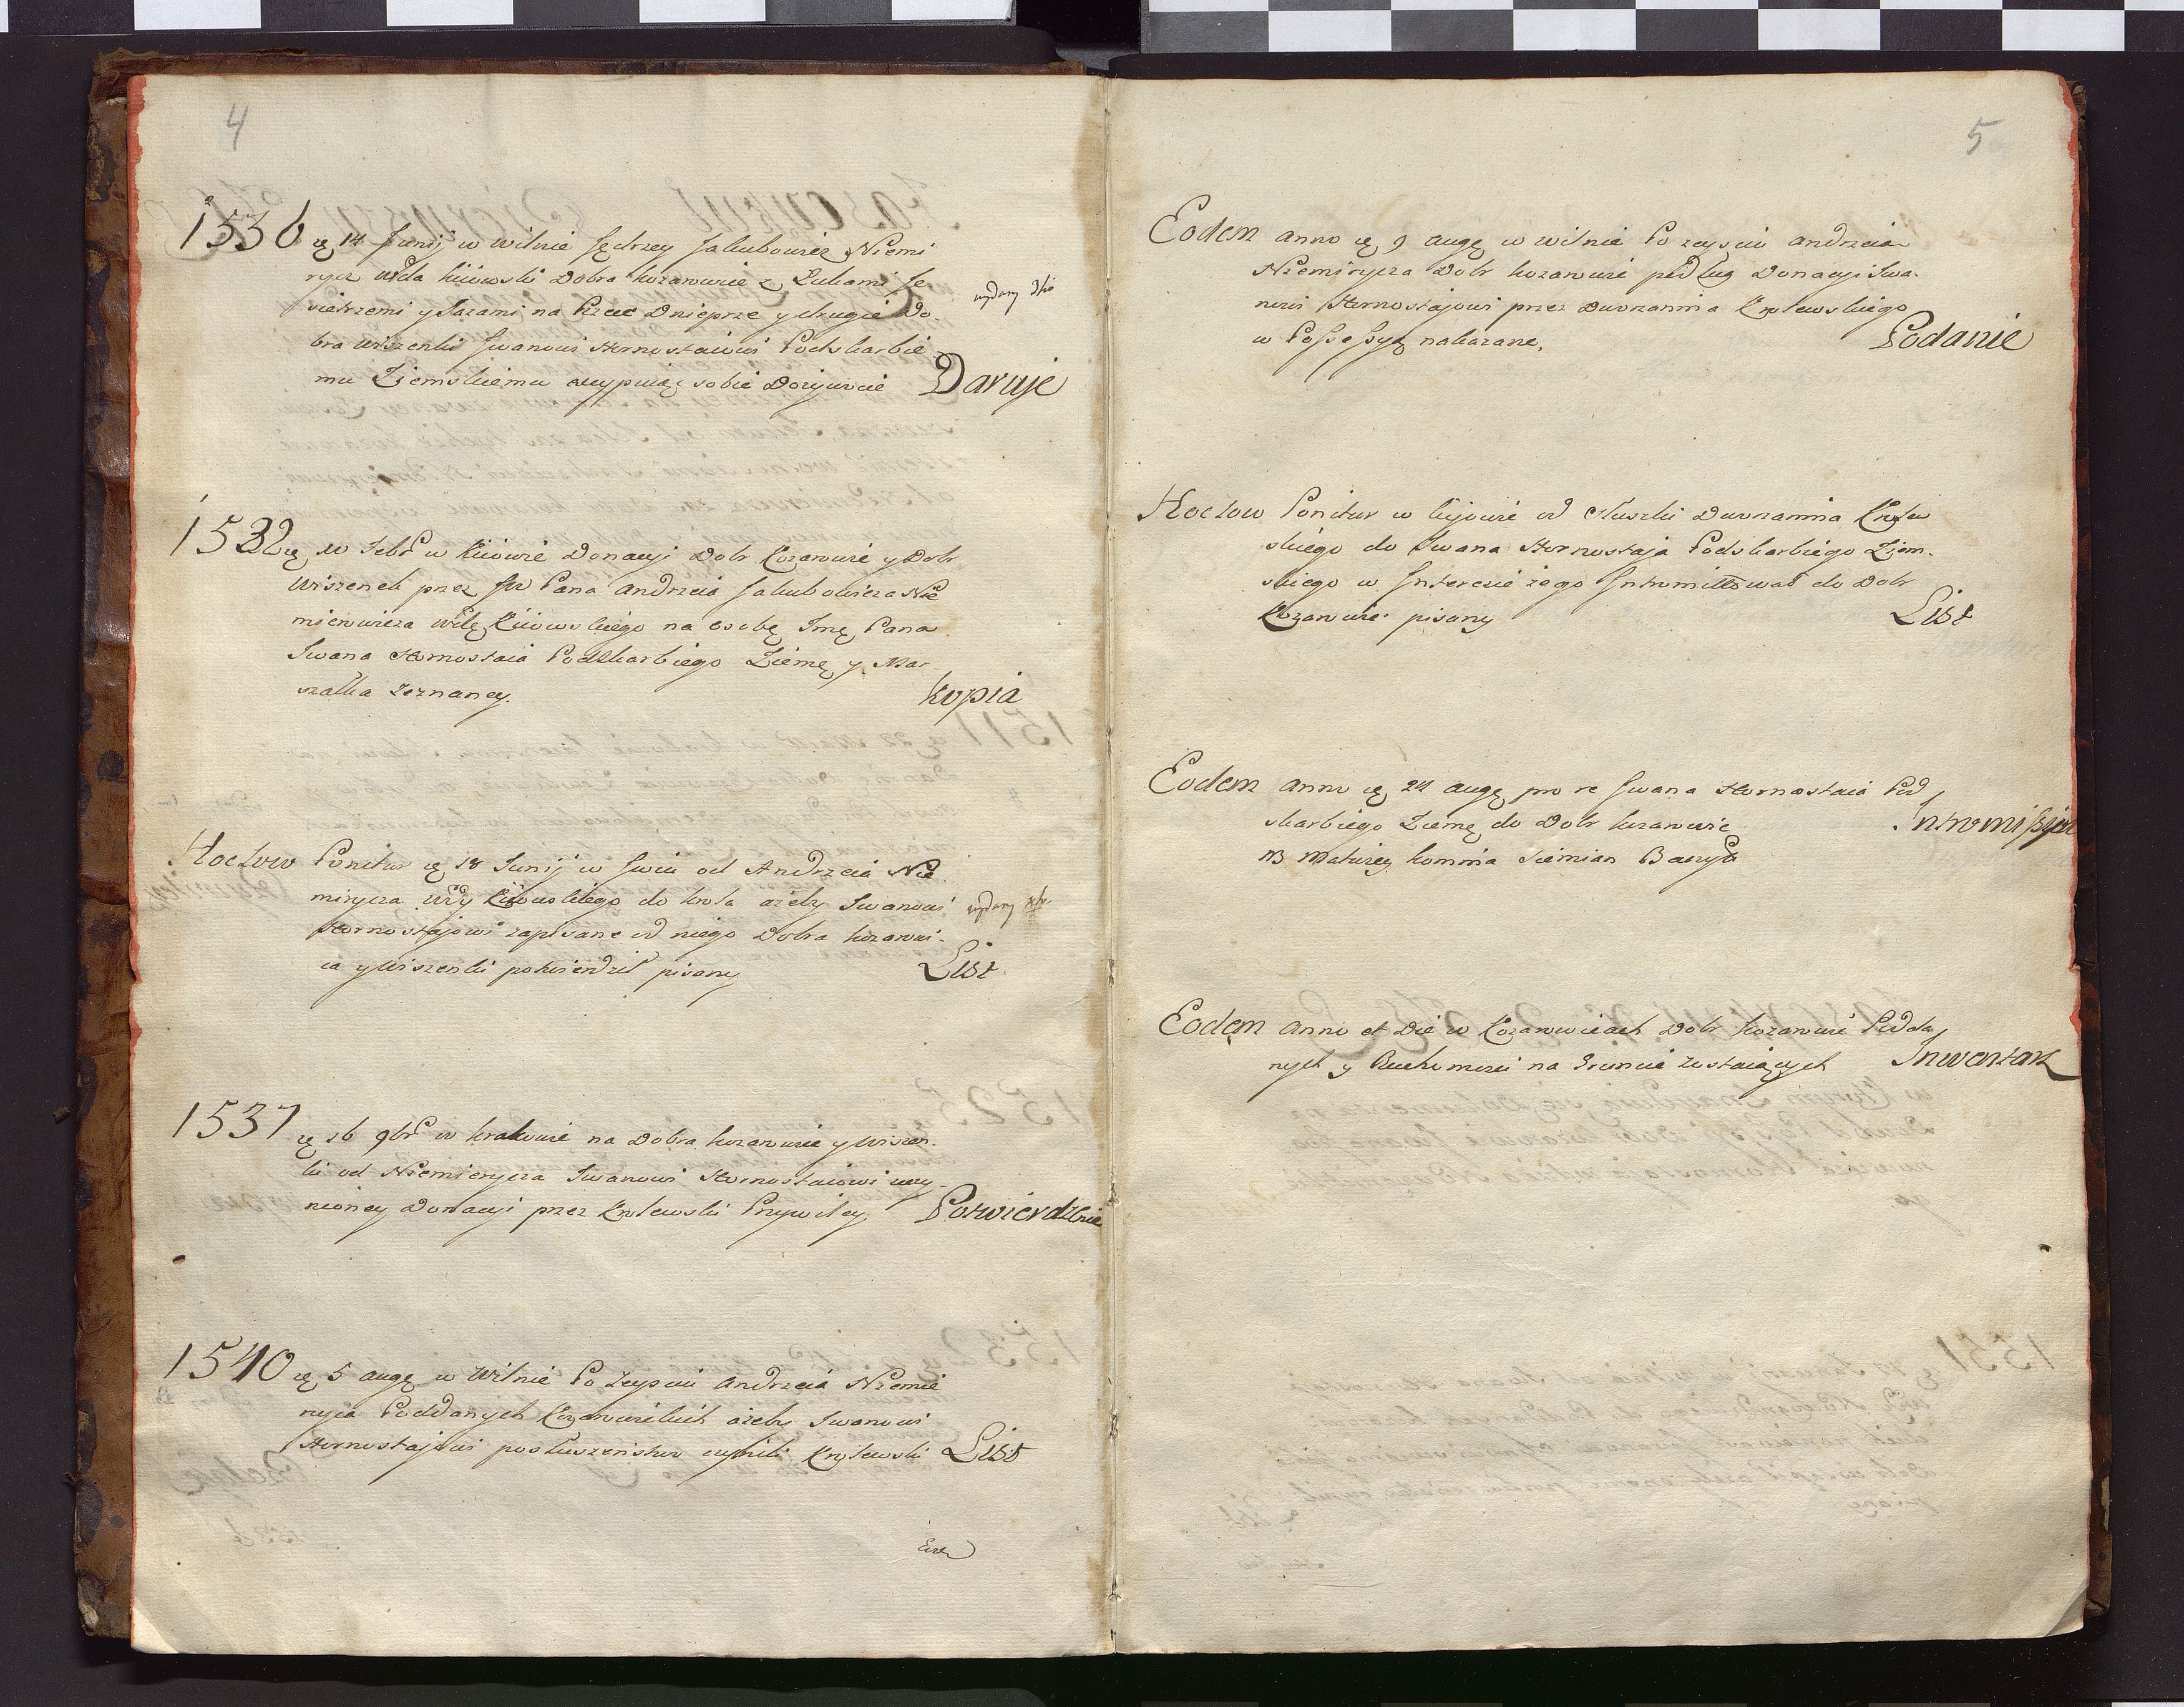 4
1536 ię 14 Junij w Wilnie Jędrzey Jakubowicz Niemi
rycz Wda Kiiowski Dobra Kozarowicze z Lukami Je
ziorzemi y Jazami na Rzece Dnieprze y drugie Do-
bra Wiszenki Iwanowi Hornostaiowi Podskarbie
mu Ziemskiemu excypuiąc sobie Dożywocie Daruje
1532 ię 10 Febr w Kiiowie Donacyi Dobr Kozarowicz y Dobr
Wiszenek przez JW Pana Andrzeia Jakubowicza Nie
mierowicza Wdę Kiiowskiego na osobę Jmę Pana
Iwana Hornostaia Podskarbiego Ziemę y Mar
szałka zeznaney. Kopia
Hoc loco Ponitur ię 18 Junij w od Andrzeia Nie
mirycza Wdy Kiiowskiego do krola ażeby Iwanowi
Hornostajowi zapisane od niego Dobra kozarowi-
cze y Wiszenki potwierdził pisany List
1537 ię 16 9br w krakowie na Dobra kozarowicze y Wiszen-
ki od Niemierycza Iwanowi Hornostaiowi uczy-
nioney Donacyi przez Krolewski Przywiley Potwierdzenie
1540 ię 5 Augę w Wilnie Po Zeysciu Andrzeia Niemie
rycza Poddanych Kozarowickich ażeby Iwanowi
Hornostajowi posłuszenstwo czynili Krolewski List
5
Eodem anno ię 9 augę w wilnie Po zeysciu andrzeia
Niemirycza Dobr kozarowicz podług Donacyi Iwa-
nowi Hornostajowi przez Dworzanina Krolewskiego
w Possessyą nakazane, Podanie
Hoc loco Ponitur w Kijowie od Sluszki Dworzanina Krolew
skiego do Iwana Hornostaja Podskarbiego Ziem-
skiego w Interesie żego Intromittował do Dobr
Kozarowicz pisany List
Eodem anno ię 24 augę pro re Iwana Hornostaia Pod
skarbiego Ziemę do Dobr kozarowicz Intromissyia
NB
Eodem anno et Die w Kozarowiczach Dobr kozarowicz Podda
nych y Ruchomosci na Gruncie zostaiących Inwentarz